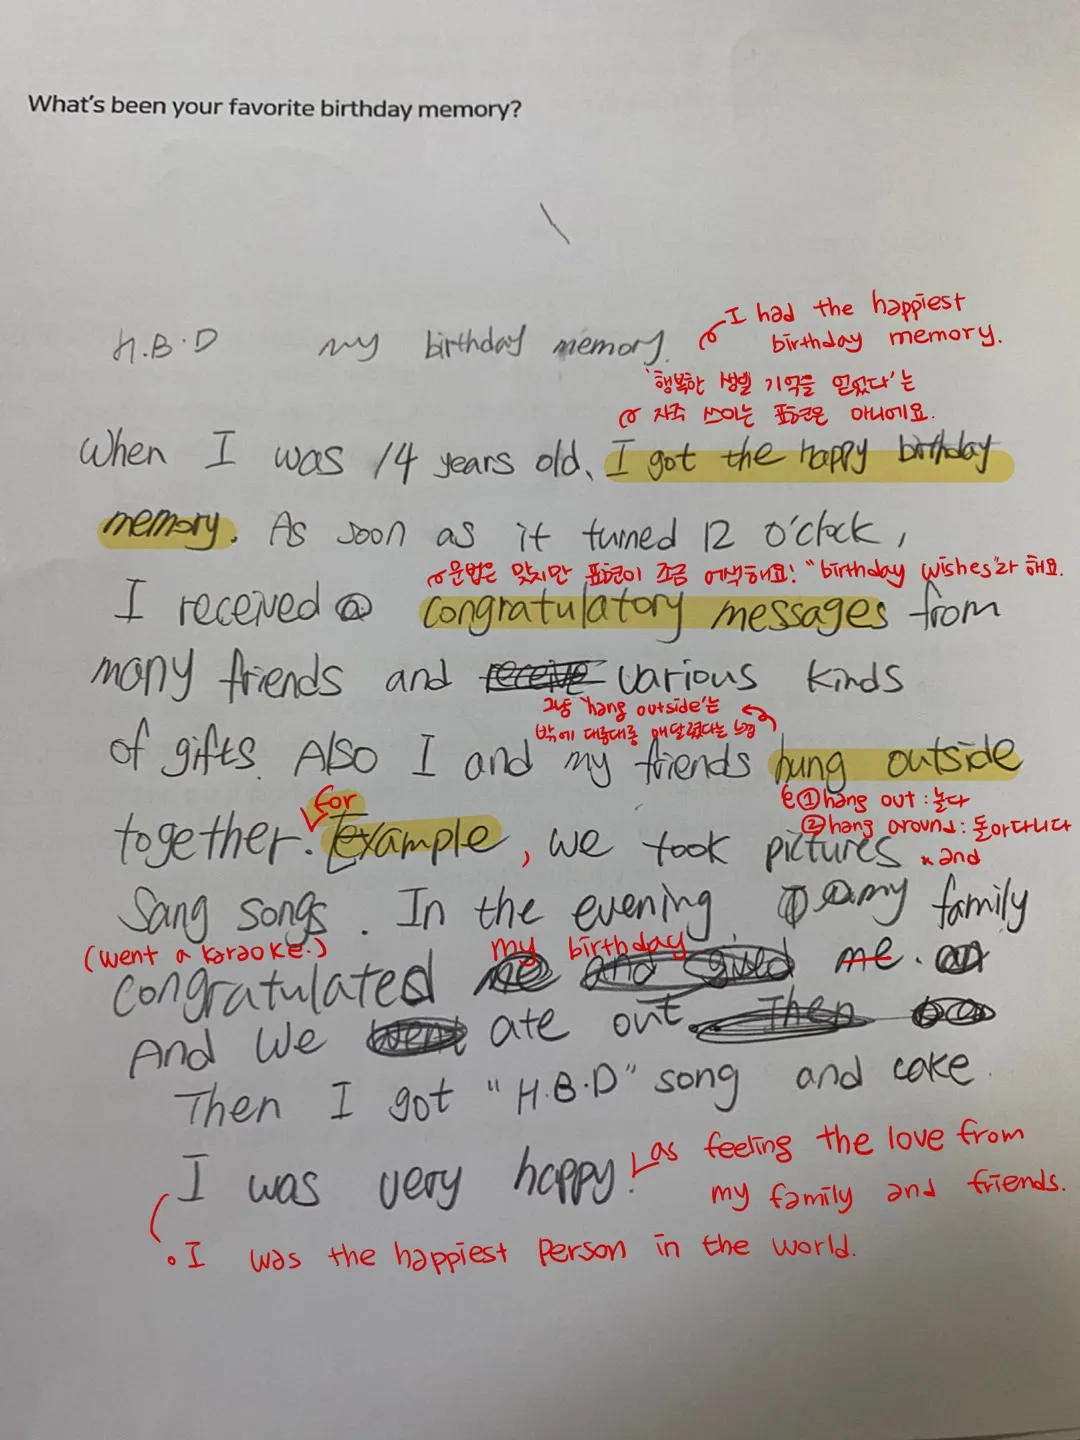 What's been your favorite birthday memory?
I had the happiest
H.B.D my birthday memory.
birthday memory.
'행복한 생일 기억을 얻었다'는
자주 쓰이는 표현은 아니에요.
When I was 14 years old, I got the happy birthday
memory. As soon as it turned 12 o'clock,
문법은 맞지만 표현이 조금 어색해요! "birthday wishes"라 해요.
I received congratulatory messages from
many friends and receive various kinds
그냥 'hang outside'는
밖에 대롱대롱 매달렸다는 느낌
of gifts. Also I and my friends hung outside
for
① hang out : 놀다
② hang around : 돌아다니다
together. Example, we took pictures
and
Sang songs. In the evening, my family
(went a karaoke.) my birthday
congratulated me and me.
And We went ate out. Then
Then I got "H.B.D" song and cake.
as feeling the love from
I was very happy.
my family and friends.
• I was the happiest person in the world.